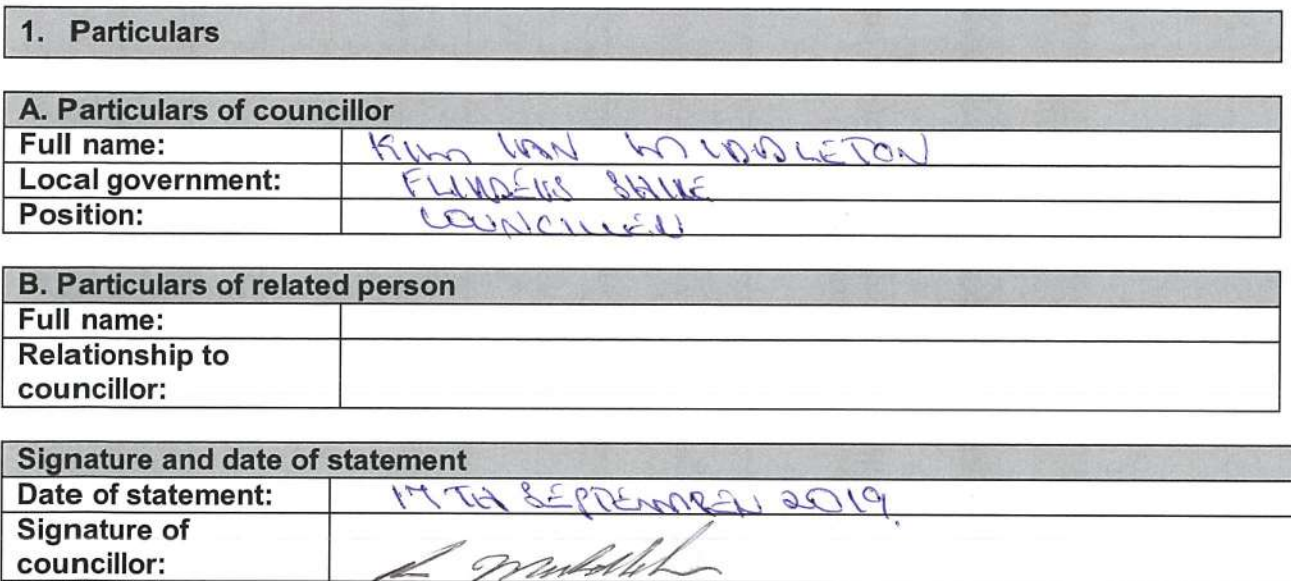 1. Particulars
A. Particulars of councillor
Full name: KIM IAN MIDDLETON
Local government: FLINDERS SHIRE
Position: COUNCILLER
B. Particulars of related person
Full name:
Relationship to
councillor:
Signature and date of statement
Date of statement: 17TH SEPTEMBER 2019.
Signature of
councillor: K Middleton